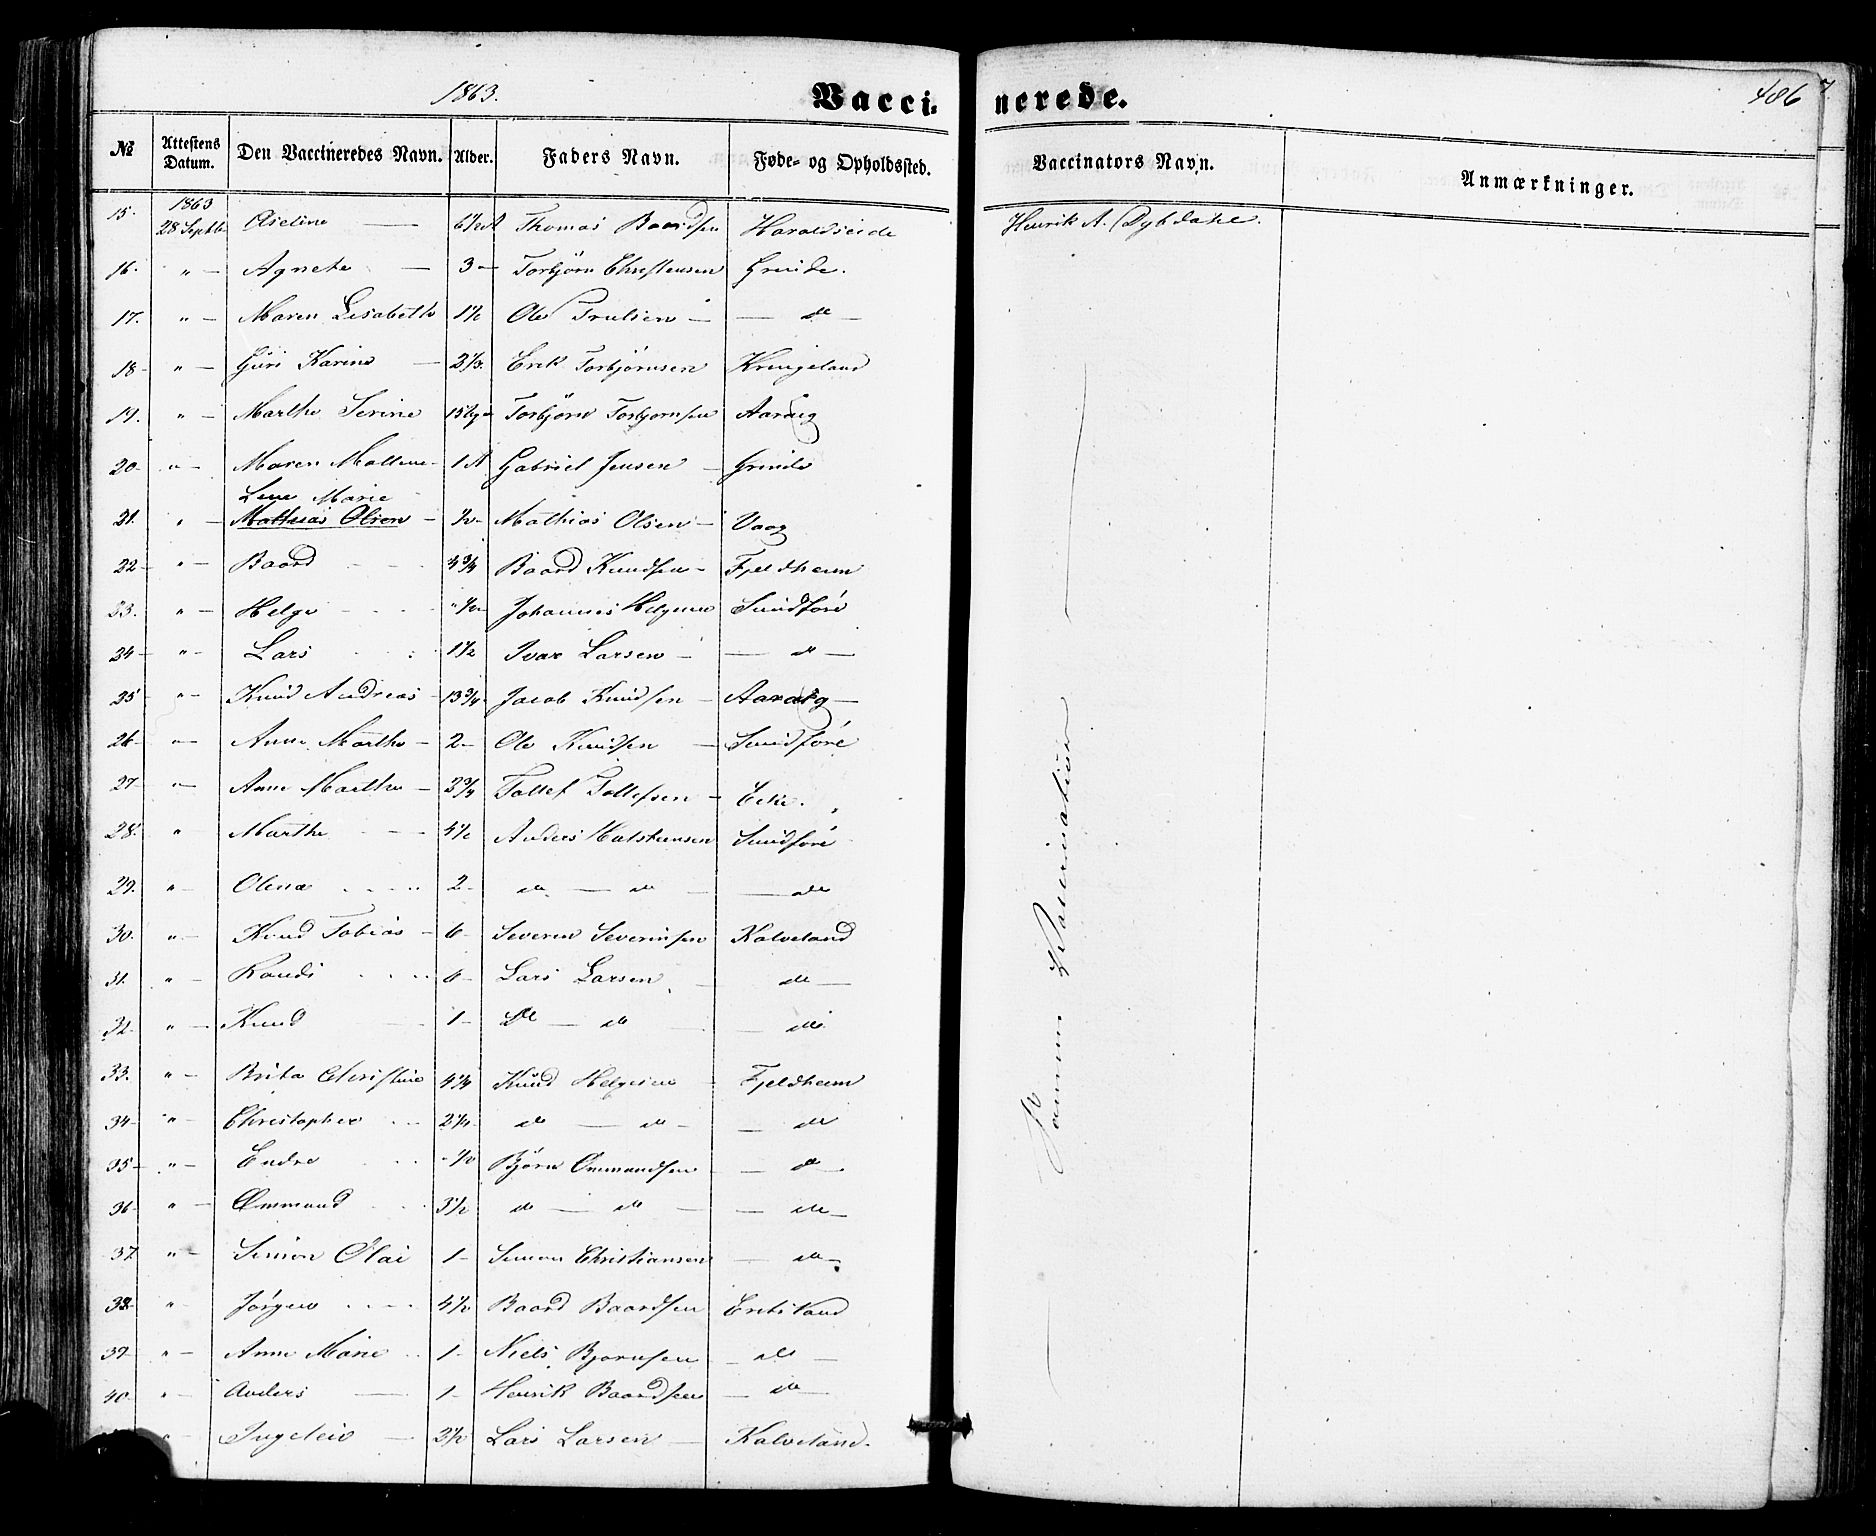 1863.
Vacci-
nerede.
486
7
№ | Attestens Datum. | Den Vaccineredes Navn. | Alder. | Faders Navn. | Føde- og Opholdssted. | Vaccinators Navn. | Anmærkninger.
1863
15. | 28 Septbr | Aseline — | 6½ A | Thomas Baardsen | Haraldseide | Henrik A. Dybdahl.
16. | " — | Agnete — | 3 — | Torbjørn Christensen | Grinde.
17. | " — | Maren Lisabeth | 1½ | Ole Trulsen — | — do —
18 — | " — | Guri Karine — | 2⅓. | Erik Torbjörnsen | Kringeland
19. | " — | Marthe Serine | 15 | Torbjörn Torbjornsen | Aarvig
20 — | " — | Maren Maltene — | 1 A | Gabriel Jensen — | Grinde
Lene Marie
21. | " — | Mathias Olsen — | ½ — | Mathias Olsen — | Vaag
22 — | " — | Baard — | 4¾ | Baard Knudsen — | Fjeldheim
23. | " — | Helge — | " ½ — | Johannes Helgesen | Sundföre
24 — | " — | Lars | 1½ | Ivar Larsen — | — do —
25 | " — | Knud Andreas — | 13¾ — | Jacob Knudsen — | Aarvig —
26 — | " — | Anne Marthe — | 2 — | Ole Knudsen — | Sundföre
27 — | " — | Anne Marthe — | 2¾ | Tollef Tollefsen — | Eike.
28. | " | Marthe — | 4½ | Anders Halstensen | Sundföre
29. | " — | Olena | 2 — | do — do — | — do
30. | " — | Knud Tobias — | 6 — | Severin Severinsen | Kalveland
31. | " — | Randi | 6 — | Lars Larsen — | do —
32 — | " — | Knud — | 1 — | Do — do — | do
33. | " — | Brita Christine | 4¼ | Knud Helgesen — | Fjeldheim
34 — | " — | Christopher | 2¼ — | do — do — | — do
35 — | " — | Endre | " ½ | Björn Ommundsen | — do.
36 | " — | Ommund | 3½ | do — do — | — do —
37 | " — | Simon Olai | 1 — | Simon Christiansen | — do —
38 — | " | Jörgen | 4½ | Baard Baardsen | Erlsland
39 — | " — | Anne Marie | 1 — | Niels Bjornsen — | do —
40 — | " — | Anders — | 1 — | Henrik Baardsen | — do —
" — | Ingeleiv — | 2½ | Lars Larsen — | Kalveland.
Samme Vaccinateur